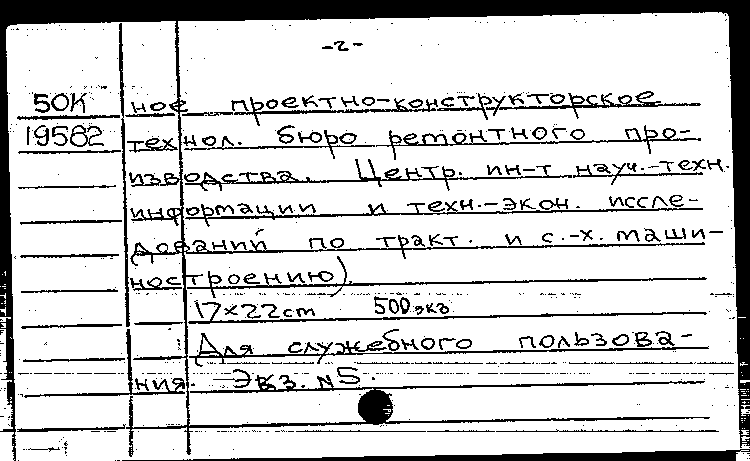 -2-
50К ное проектно-конструкторское
19562 технол. бюро ремонтного про-
изводства. Центр. ин-т науч.-техн.
информации и техн.-экон. иссле-
дований по тракт. и с.-х. маши-
ностроению)
17×22cm 500 экз
Для служебного пользова-
ния. Экз. №5.